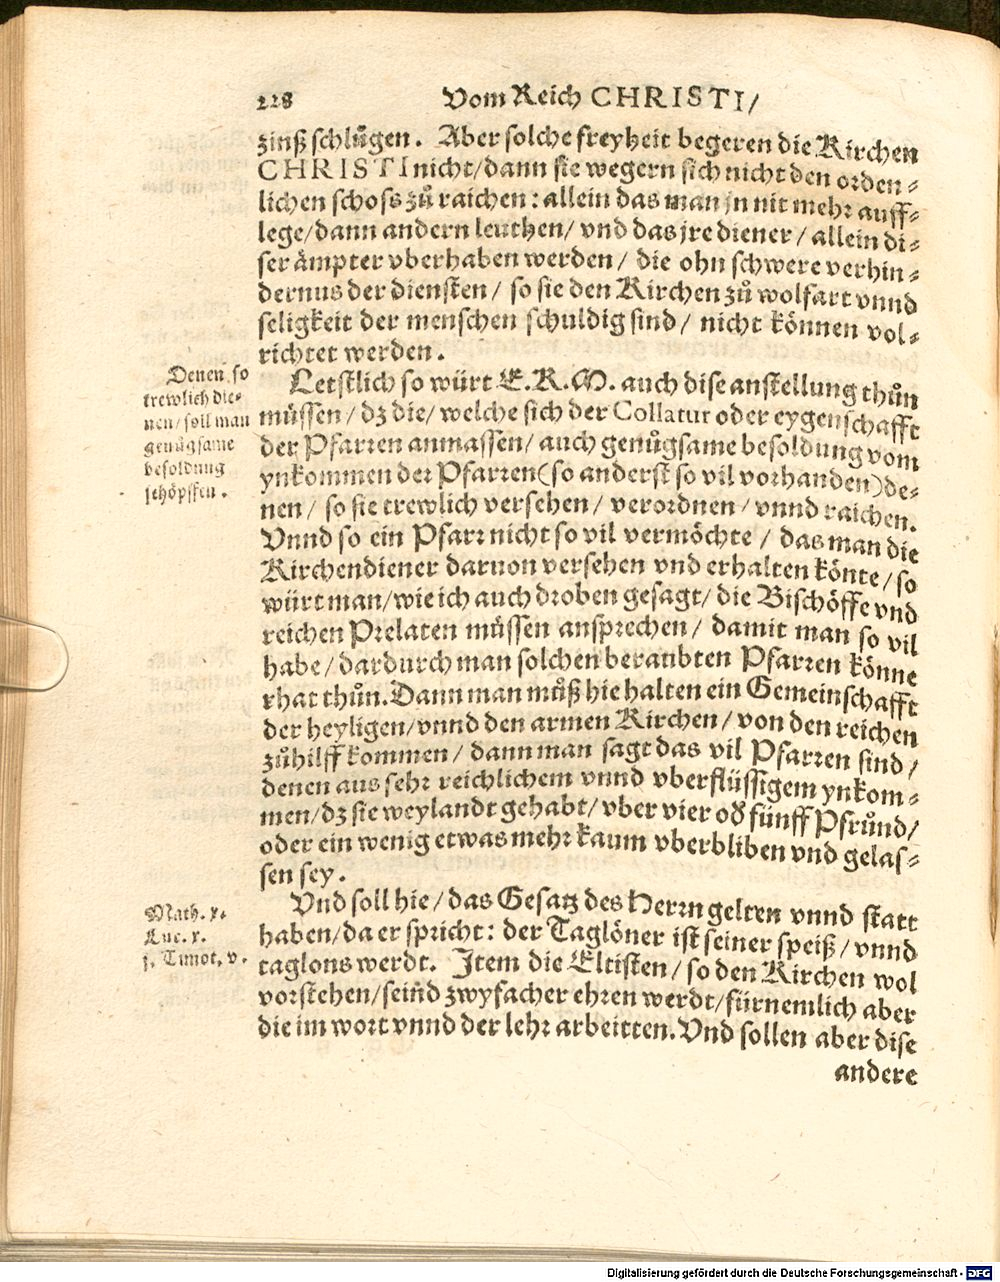 228 Vom Reich CHRISTI /
zinß schlügen. Aber solche freyheit begeren die Kirchen
CHRISTI nicht / dann sie wegern sich nicht den orden⸗
lichen schoss zů raichen : allein das man jn nit mehr auff⸗
lege / dann andern leuthen / vnd das jre diener / allein di⸗
ser ämpter vberhaben werden / die ohn schwere verhin⸗
dernus der diensten / so sie den Kirchen zů wolfart vnnd
seligkeit der menschen schuldig sind / nicht können vol⸗
richtet werden.
Letstlich so würt E. K. M. auch dise anstellung thůn
müssen / dz die / welche sich der Collatur oder eygenschafft
der Pfarren anmassen / auch genůgsame besoldung vom
ynkommen der Pfarren (so anderst so vil vorhanden) de⸗
nen / so sie trewlich versehen / verordnen / vnnd raichen.
Vnnd so ein Pfarr nicht so vil vermöchte / das man die
Kirchendiener daruon versehen vnd erhalten könte / so
würt man / wie ich auch droben gesagt / die Bischöffe vnd
reichen Prelaten müssen ansprechen / damit man so vil
habe / dardurch man solchen beraubten Pfarren könne
rhat thůn. Dann man můß hie halten ein Gemeinschafft
der heyligen / vnnd den armen Kirchen / von den reichen
zůhilff kommen / dann man sagt das vil Pfarren sind /
denen aus sehr reichlichem vnnd vberflüssigem ynkom⸗
men / dz sie weylandt gehabt / vber vier oď fünff Pfrůnd /
oder ein wenig etwas mehr kaum vberbliben vnd gelas⸗
sen sey.
Vnd soll hie / das Gesatz des Herrn gelten vnnd statt
haben / da er spricht : der Taglöner ist seiner speiß / vnnd
taglons werdt. Item die Eltisten / so den Kirchen wol
vorstehen / seind zwyfacher ehren werdt / fürnemlich aber
die im wort vnnd der lehr arbeitten. Vnd sollen aber dise
andere
Denen so
trewlich die⸗
nen / soll man
genůgsame
besoldung
schöpffen.
Math. x.
Luc. x.
j. Timot. v.
Digitalisierung gefördert durch die Deutsche Forschungsgemeinschaft - DFG